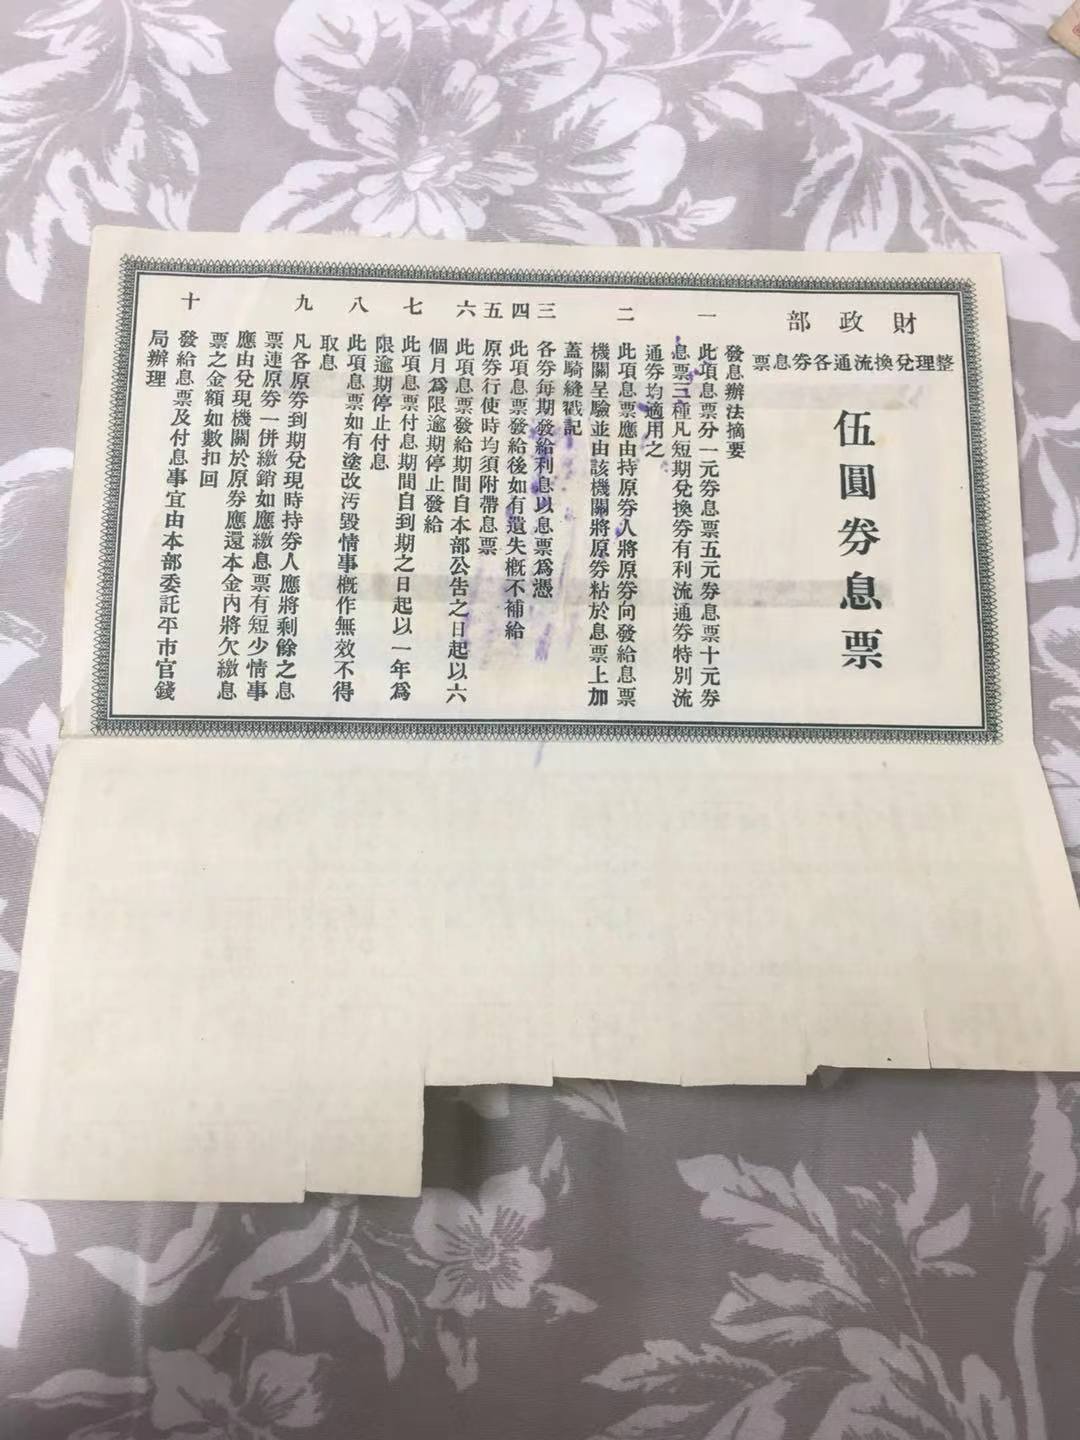 財政部
整理兌換流通各券息票
伍圓券息票
發息辦法摘要
一
此項息票分一元券息票五元券息票十元券
息票三種凡短期兌換券有利流通券特別流
通券均適用之
二
此項息票應由持原券人將原券向發給息票
機關呈驗並由該機關將原券粘於息票上加
蓋騎縫戳記
三
各券每期發給利息以息票爲憑
四
此項息票發給後如有遺失概不補給
五
原券行使時均須附帶息票
六
此項息票發給期間自本部公告之日起以六
個月爲限逾期停止發給
七
此項息票付息期間自到期之日起以一年爲
限逾期停止付息
八
此項息票如有塗改汚毀情事概作無效不得
取息
九
凡各原券到期兌現時持券人應將剩餘之息
票連原券一併繳銷如應繳息票有短少情事
應由兌現機關於原券應還本金內將欠繳息
票之金額如數扣回
十
發給息票及付息事宜由本部委託平市官錢
局辦理